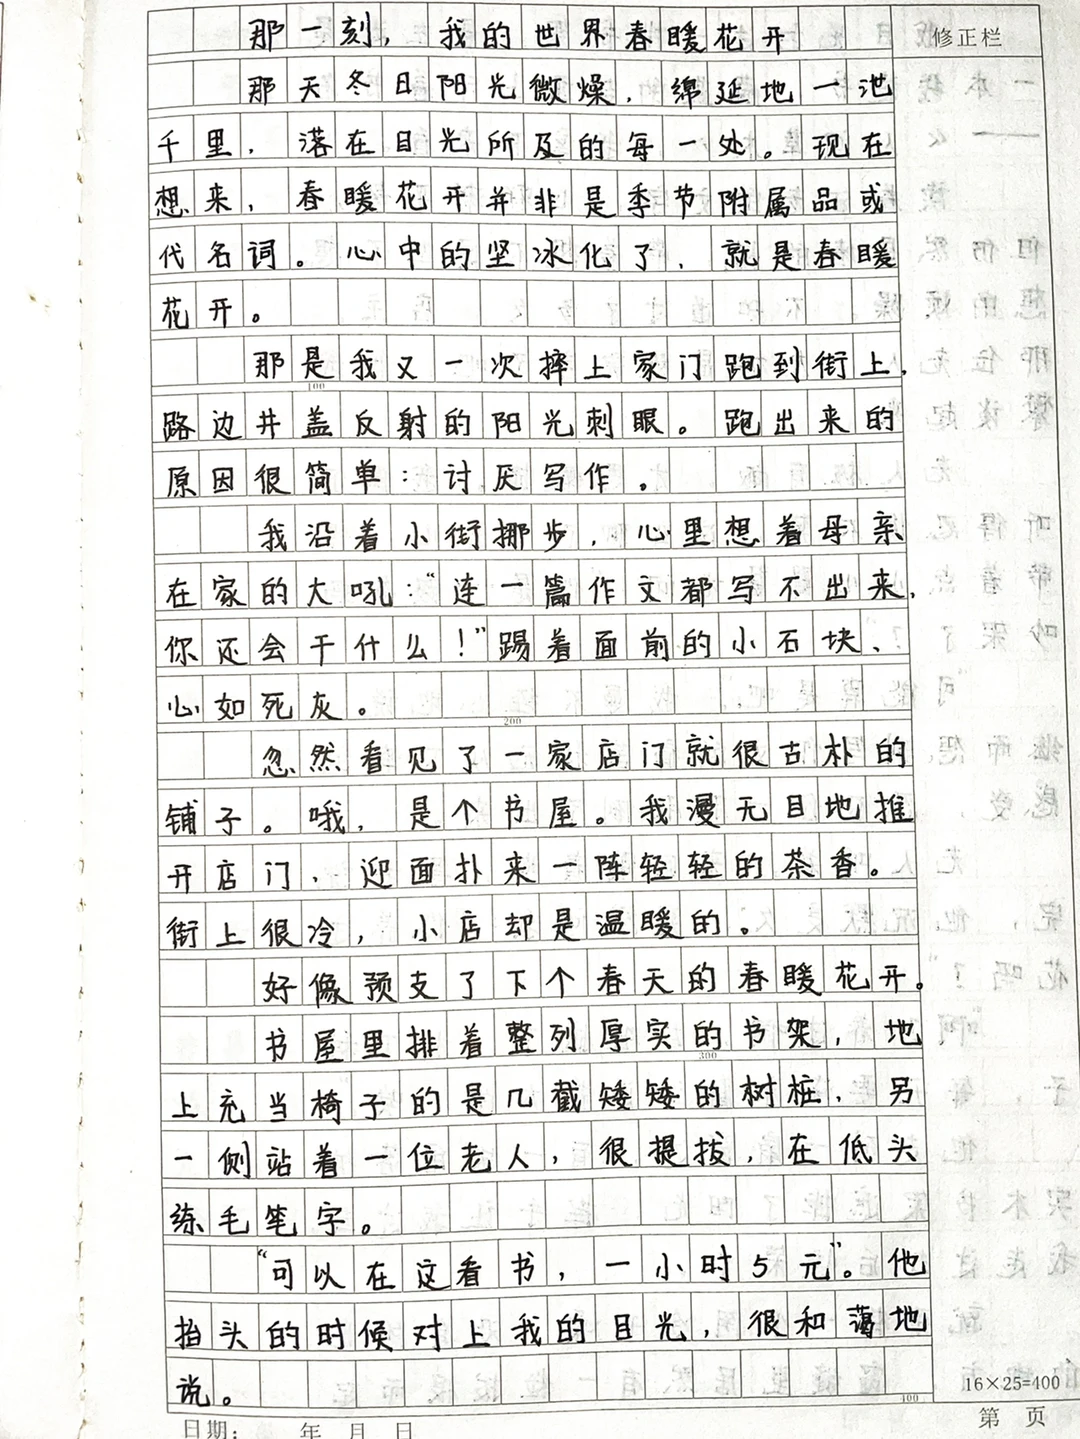 那一刻，我的世界春暖花开
修正栏
那天冬日阳光微燥，绵延地一池
千里，落在目光所及的每一处。现在
想来，春暖花开并非是季节附属品或
代名词。心中的坚冰化了，就是春暖
花开。
那是我又一次摔上家门跑到街上，
100
路边井盖反射的阳光刺眼。跑出来的
原因很简单：讨厌写作。
我沿着小街挪步，心里想着母亲
在家的大吼：“连一篇作文都写不出来，
你还会干什么！”踢着面前的小石块，
心如死灰。
200
忽然看见了一家店门就很古朴的
铺子。哦，是个书屋。我漫无目地推
开店门，迎面扑来一阵轻轻的茶香。
街上很冷，小店却是温暖的。
好像预支了下个春天的春暖花开。
书屋里排着整列厚实的书架，地
300
上充当椅子的是几截矮矮的树桩，另
一侧站着一位老人，很提拔，在低头
练毛笔字。
“可以在这看书，一小时5元”。他
抬头的时候对上我的目光，很和蔼地
说。
16×25=400
400
日期： 年 月 日
第 页